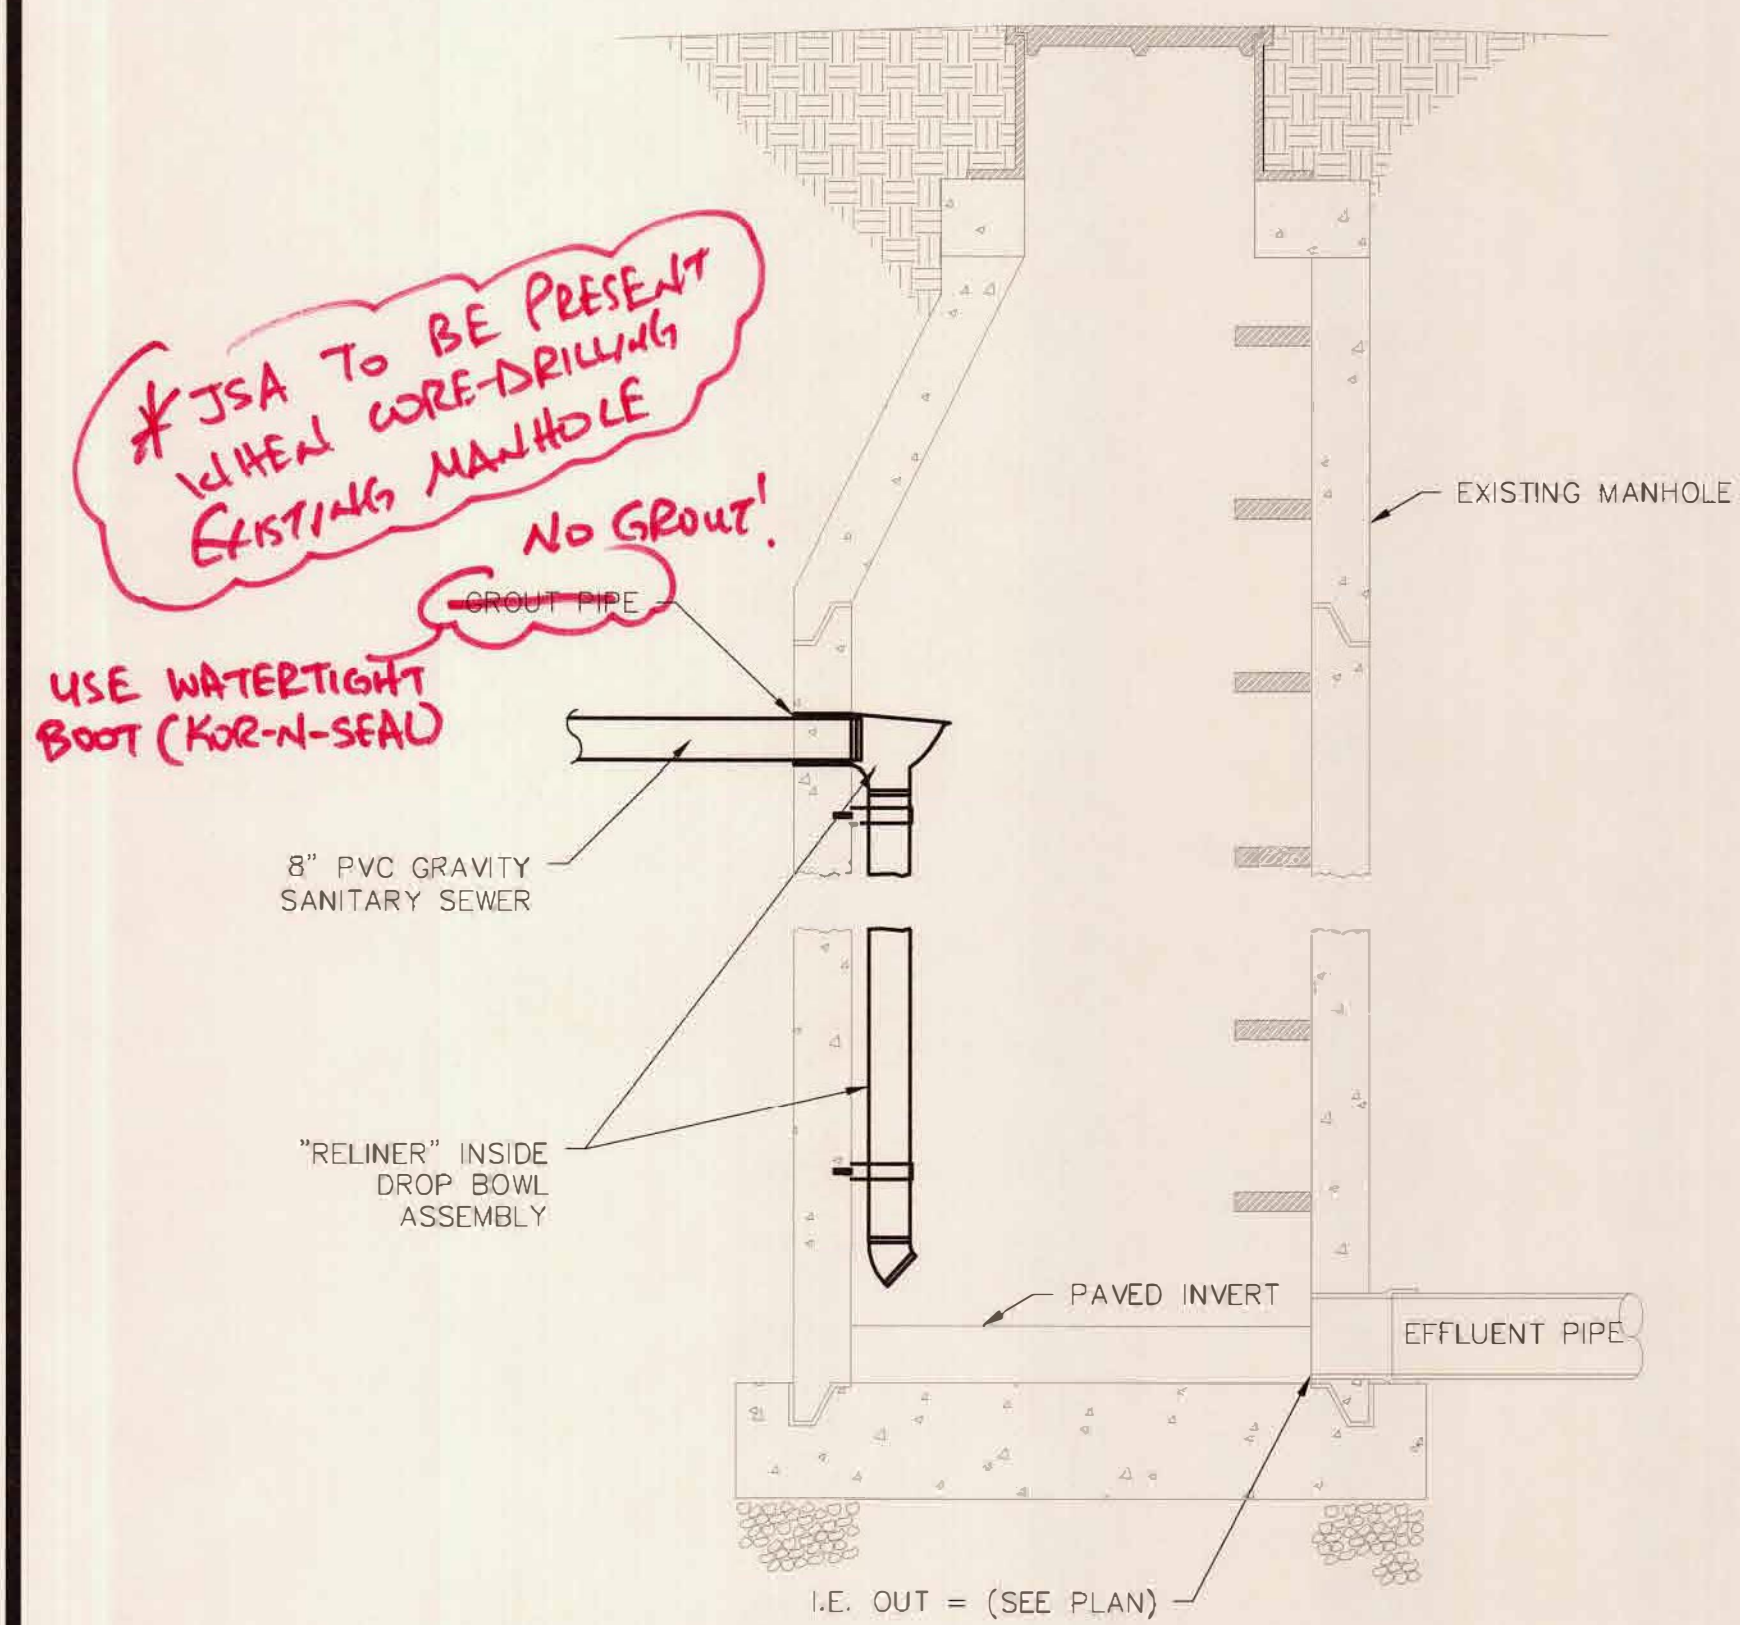 * JSA TO BE PRESENT
WHEN CORE-DRILLING
EXISTING MANHOLE
NO GROUT!
GROUT PIPE
USE WATERTIGHT
BOOT (KOR-N-SEAL)
EXISTING MANHOLE
8" PVC GRAVITY
SANITARY SEWER
"RELINER" INSIDE
DROP BOWL
ASSEMBLY
PAVED INVERT
EFFLUENT PIPE
I.E. OUT = (SEE PLAN)